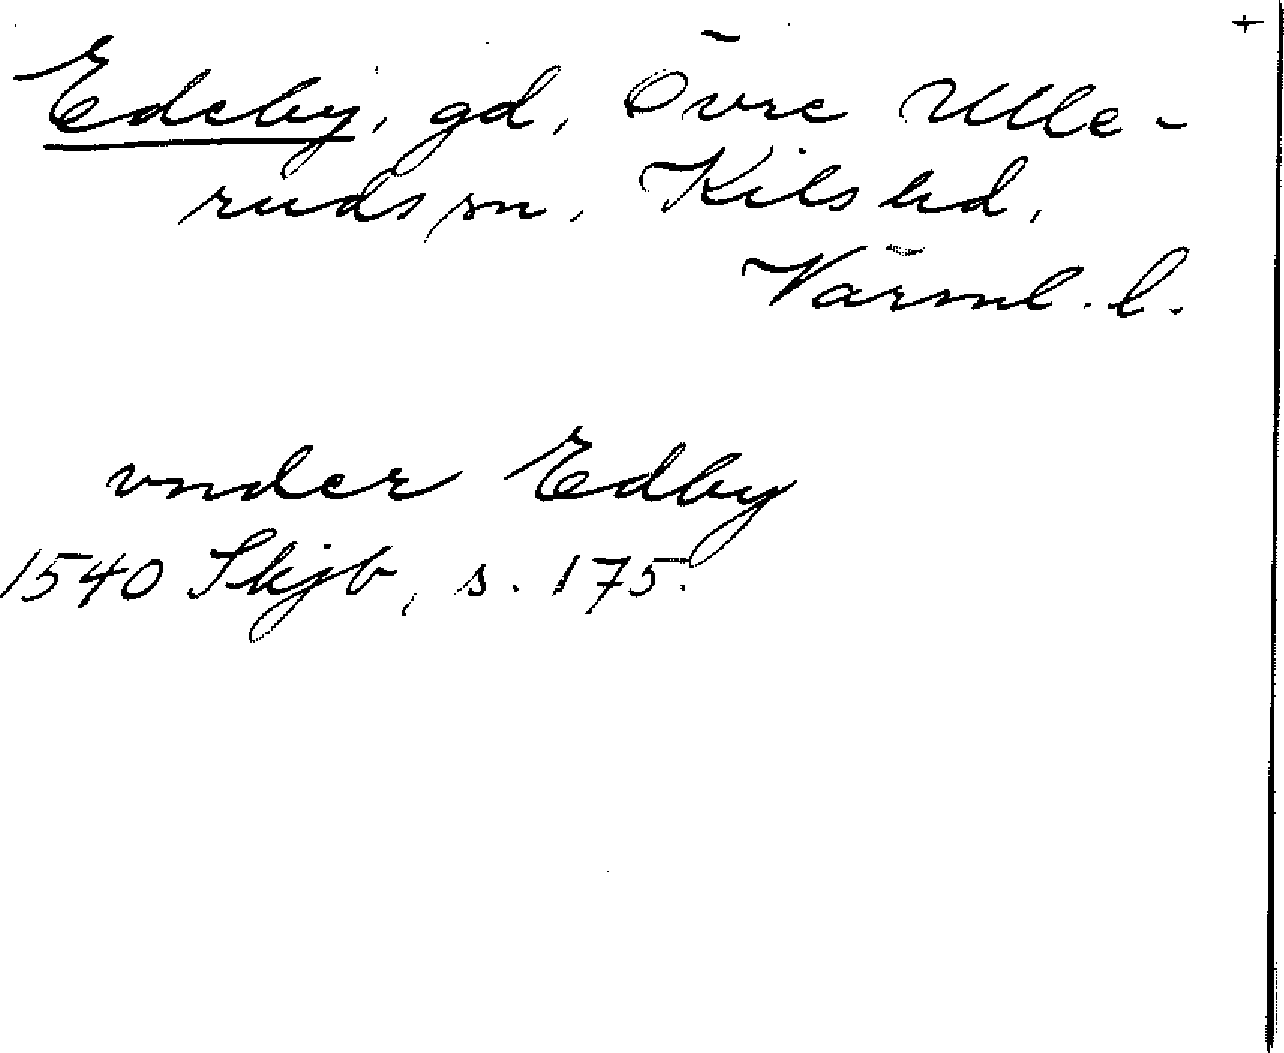 +
Edeby, gd, Övre Ulle-
ruds sn, Kils hd,
Värml. l.
vnder Edby
1540 Skjb, s. 175.